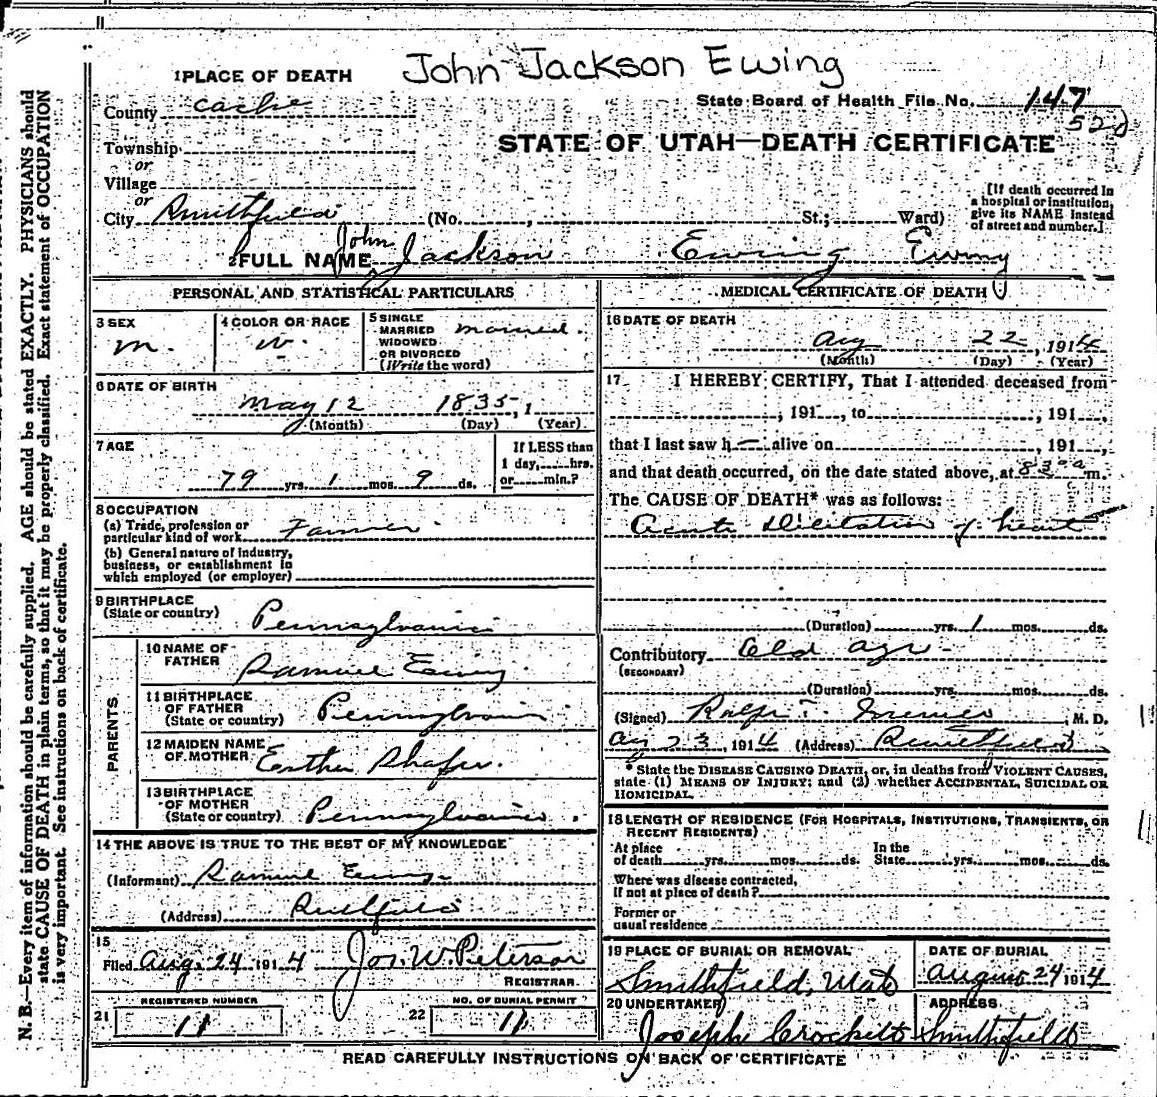 John Jackson Ewing
1 PLACE OF DEATH
County Cache
State Board of Health File No. 147
52d
STATE OF UTAH—DEATH CERTIFICATE
Township
or
Village
or
City Smithfield (No. , St.; Ward)
[If death occurred in a hospital or institution, give its NAME instead of street and number.]
John
2 FULL NAME Jackson Ewing Ewing
PERSONAL AND STATISTICAL PARTICULARS
3 SEX
m.
4 COLOR OR RACE
w.
5 SINGLE MARRIED WIDOWED OR DIVORCED (Write the word) married.
6 DATE OF BIRTH
May 12 1835, 1
(Month) (Day) (Year)
7 AGE
79 yrs. 1 mos. 9 ds.
If LESS than 1 day, hrs. or min.?
8 OCCUPATION
(a) Trade, profession or particular kind of work Farmer
(b) General nature of industry, business, or establishment in which employed (or employer)
9 BIRTHPLACE
(State or country) Pennsylvania
PARENTS
10 NAME OF FATHER Samuel Ewing
11 BIRTHPLACE OF FATHER (State or country) Pennsylvania
12 MAIDEN NAME OF MOTHER Esther Shafer.
13 BIRTHPLACE OF MOTHER (State or country) Pennsylvania.
14 THE ABOVE IS TRUE TO THE BEST OF MY KNOWLEDGE
(Informant) Samuel Ewing
(Address) Smithfield
15
Filed Aug. 24 1914 Jos. W. Peterson
REGISTRAR.
REGISTERED NUMBER
21 11
NO. OF BURIAL PERMIT
22 11
MEDICAL CERTIFICATE OF DEATH
16 DATE OF DEATH
Aug 22, 1914
(Month) (Day) (Year)
17 I HEREBY CERTIFY, That I attended deceased from
, 191 , to , 191 ,
that I last saw h — alive on , 191 ,
and that death occurred, on the date stated above, at 8:30 a m.
The CAUSE OF DEATH* was as follows:
Acute Dilitation of heart
(Duration) yrs. 1 mos. ds.
Contributory Old age.
(SECONDARY)
(Duration) yrs. mos. ds.
(Signed) Ralph T. , M. D.
Aug 23, 1914 (Address) Smithfield
* State the DISEASE CAUSING DEATH, or, in deaths from VIOLENT CAUSES, state (1) MEANS OF INJURY; and (2) whether ACCIDENTAL, SUICIDAL OR HOMICIDAL.
18 LENGTH OF RESIDENCE (FOR HOSPITALS, INSTITUTIONS, TRANSIENTS, OR RECENT RESIDENTS)
At place of death yrs. mos. ds. In the State yrs. mos. ds.
Where was disease contracted, If not at place of death?
Former or usual residence
19 PLACE OF BURIAL OR REMOVAL
Smithfield, Utah
DATE OF BURIAL
August 24 1914
20 UNDERTAKER
Joseph Crockett
ADDRESS
Smithfield
READ CAREFULLY INSTRUCTIONS ON BACK OF CERTIFICATE
N. B.—Every item of information should be carefully supplied. AGE should be stated EXACTLY. PHYSICIANS should
state CAUSE OF DEATH in plain terms, so that it may be properly classified. Exact statement of OCCUPATION
is very important. See instructions on back of certificate.